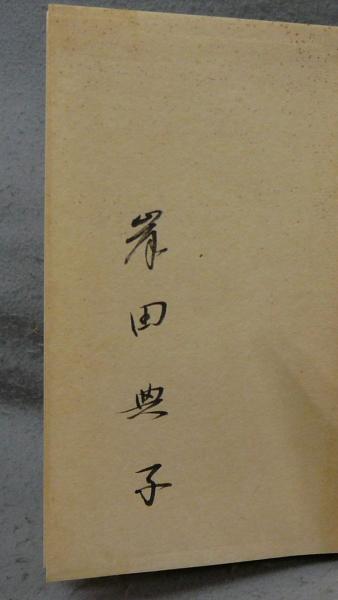 岸田典子